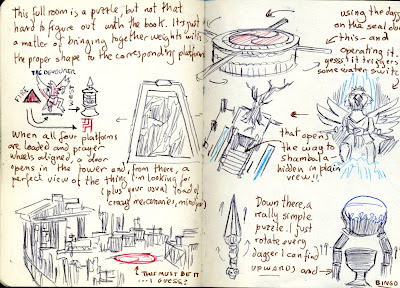 This full room is a puzzle, but not that
hard to figure out with the book. It's just
a matter of bringing together weights with
the proper shape to the corresponding platform
THE DEVOURER
FIRE
When all four platforms
are loaded and prayer
wheels aligned, a door
opens in the tower and, from there, a
perfect view of the thing I'm looking for
(plus your usual load of
crazy mercenaries, mind you)
THIS MUST BE IT
...I GUESS?
using the dagg
on the seal dow
this - and
operating it.
guess it triggers
some water switc
that opens
the way to
shambala
hidden in plain
view!!
Down there, a
really simple
puzzle. I just
rotate every
dagger I can find
UPWARDS and
BINGO